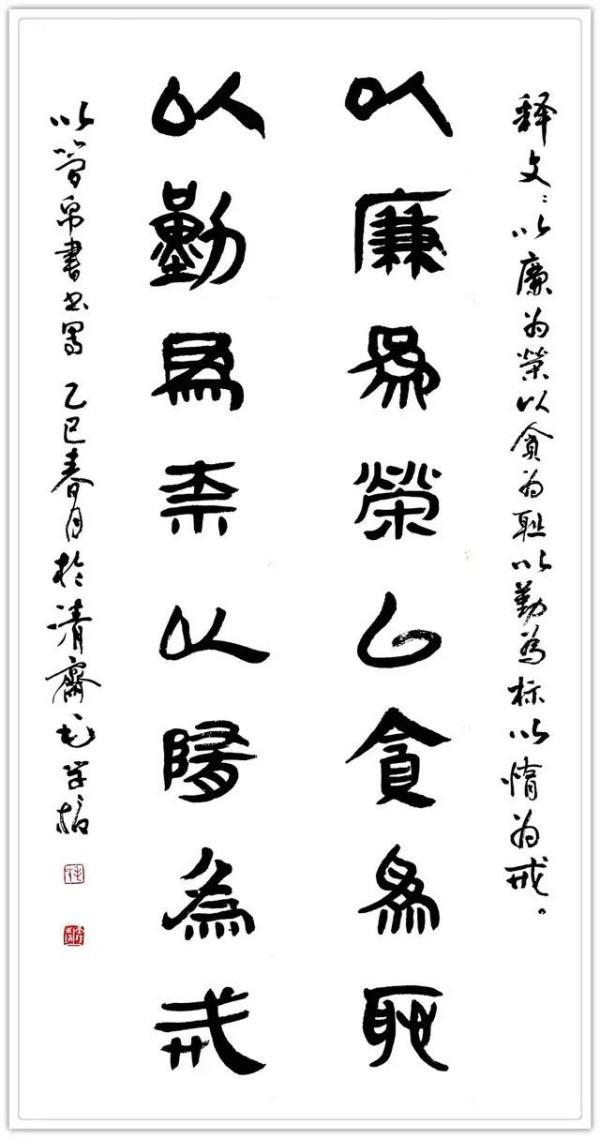 释文：以廉为榮以貪为耻以勤為标以惰为戒。
以廉為榮以貪為耻
以勤為标以惰為戒
以简帛書书写 乙巳春月於清齋